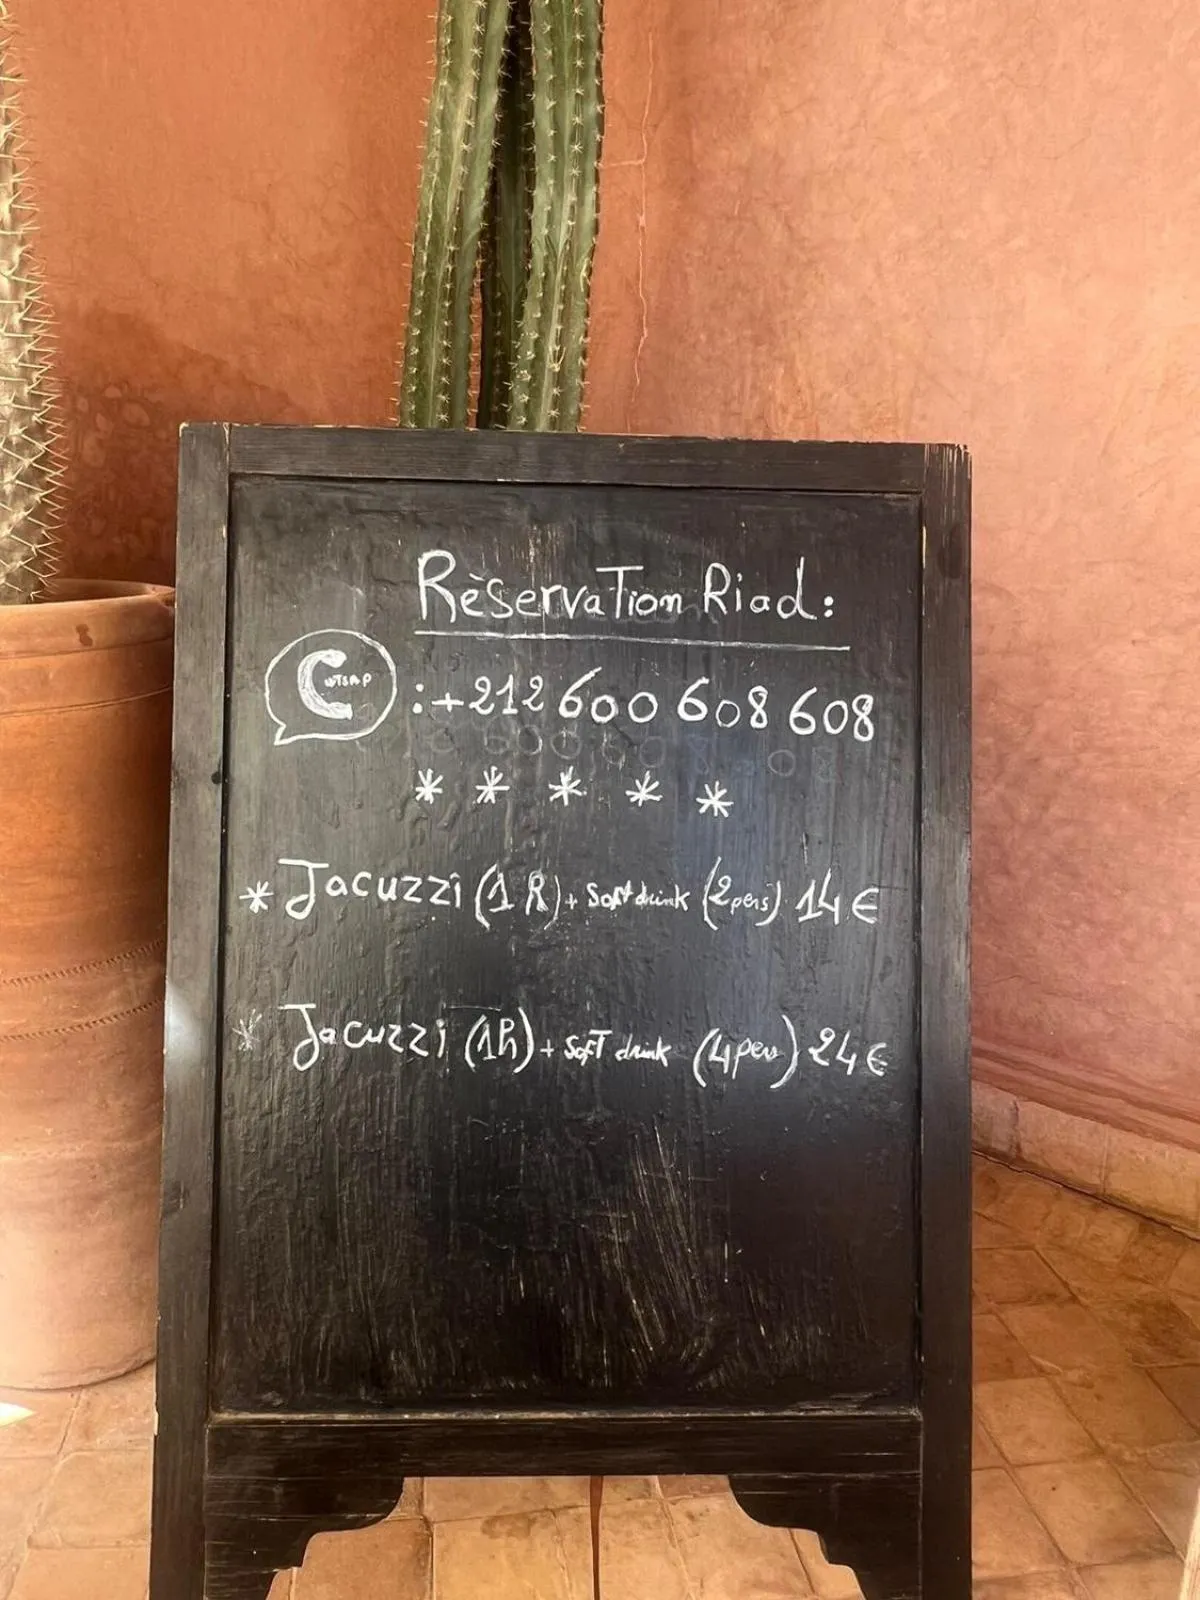 Rèservation Riad:
wTSAP : +212 600 608 608
* * * * *
* Jacuzzi (1 R) + Soft drink (2 pers) 14 €
* Jacuzzi (1R) + Soft drink (4 pers) 24 €